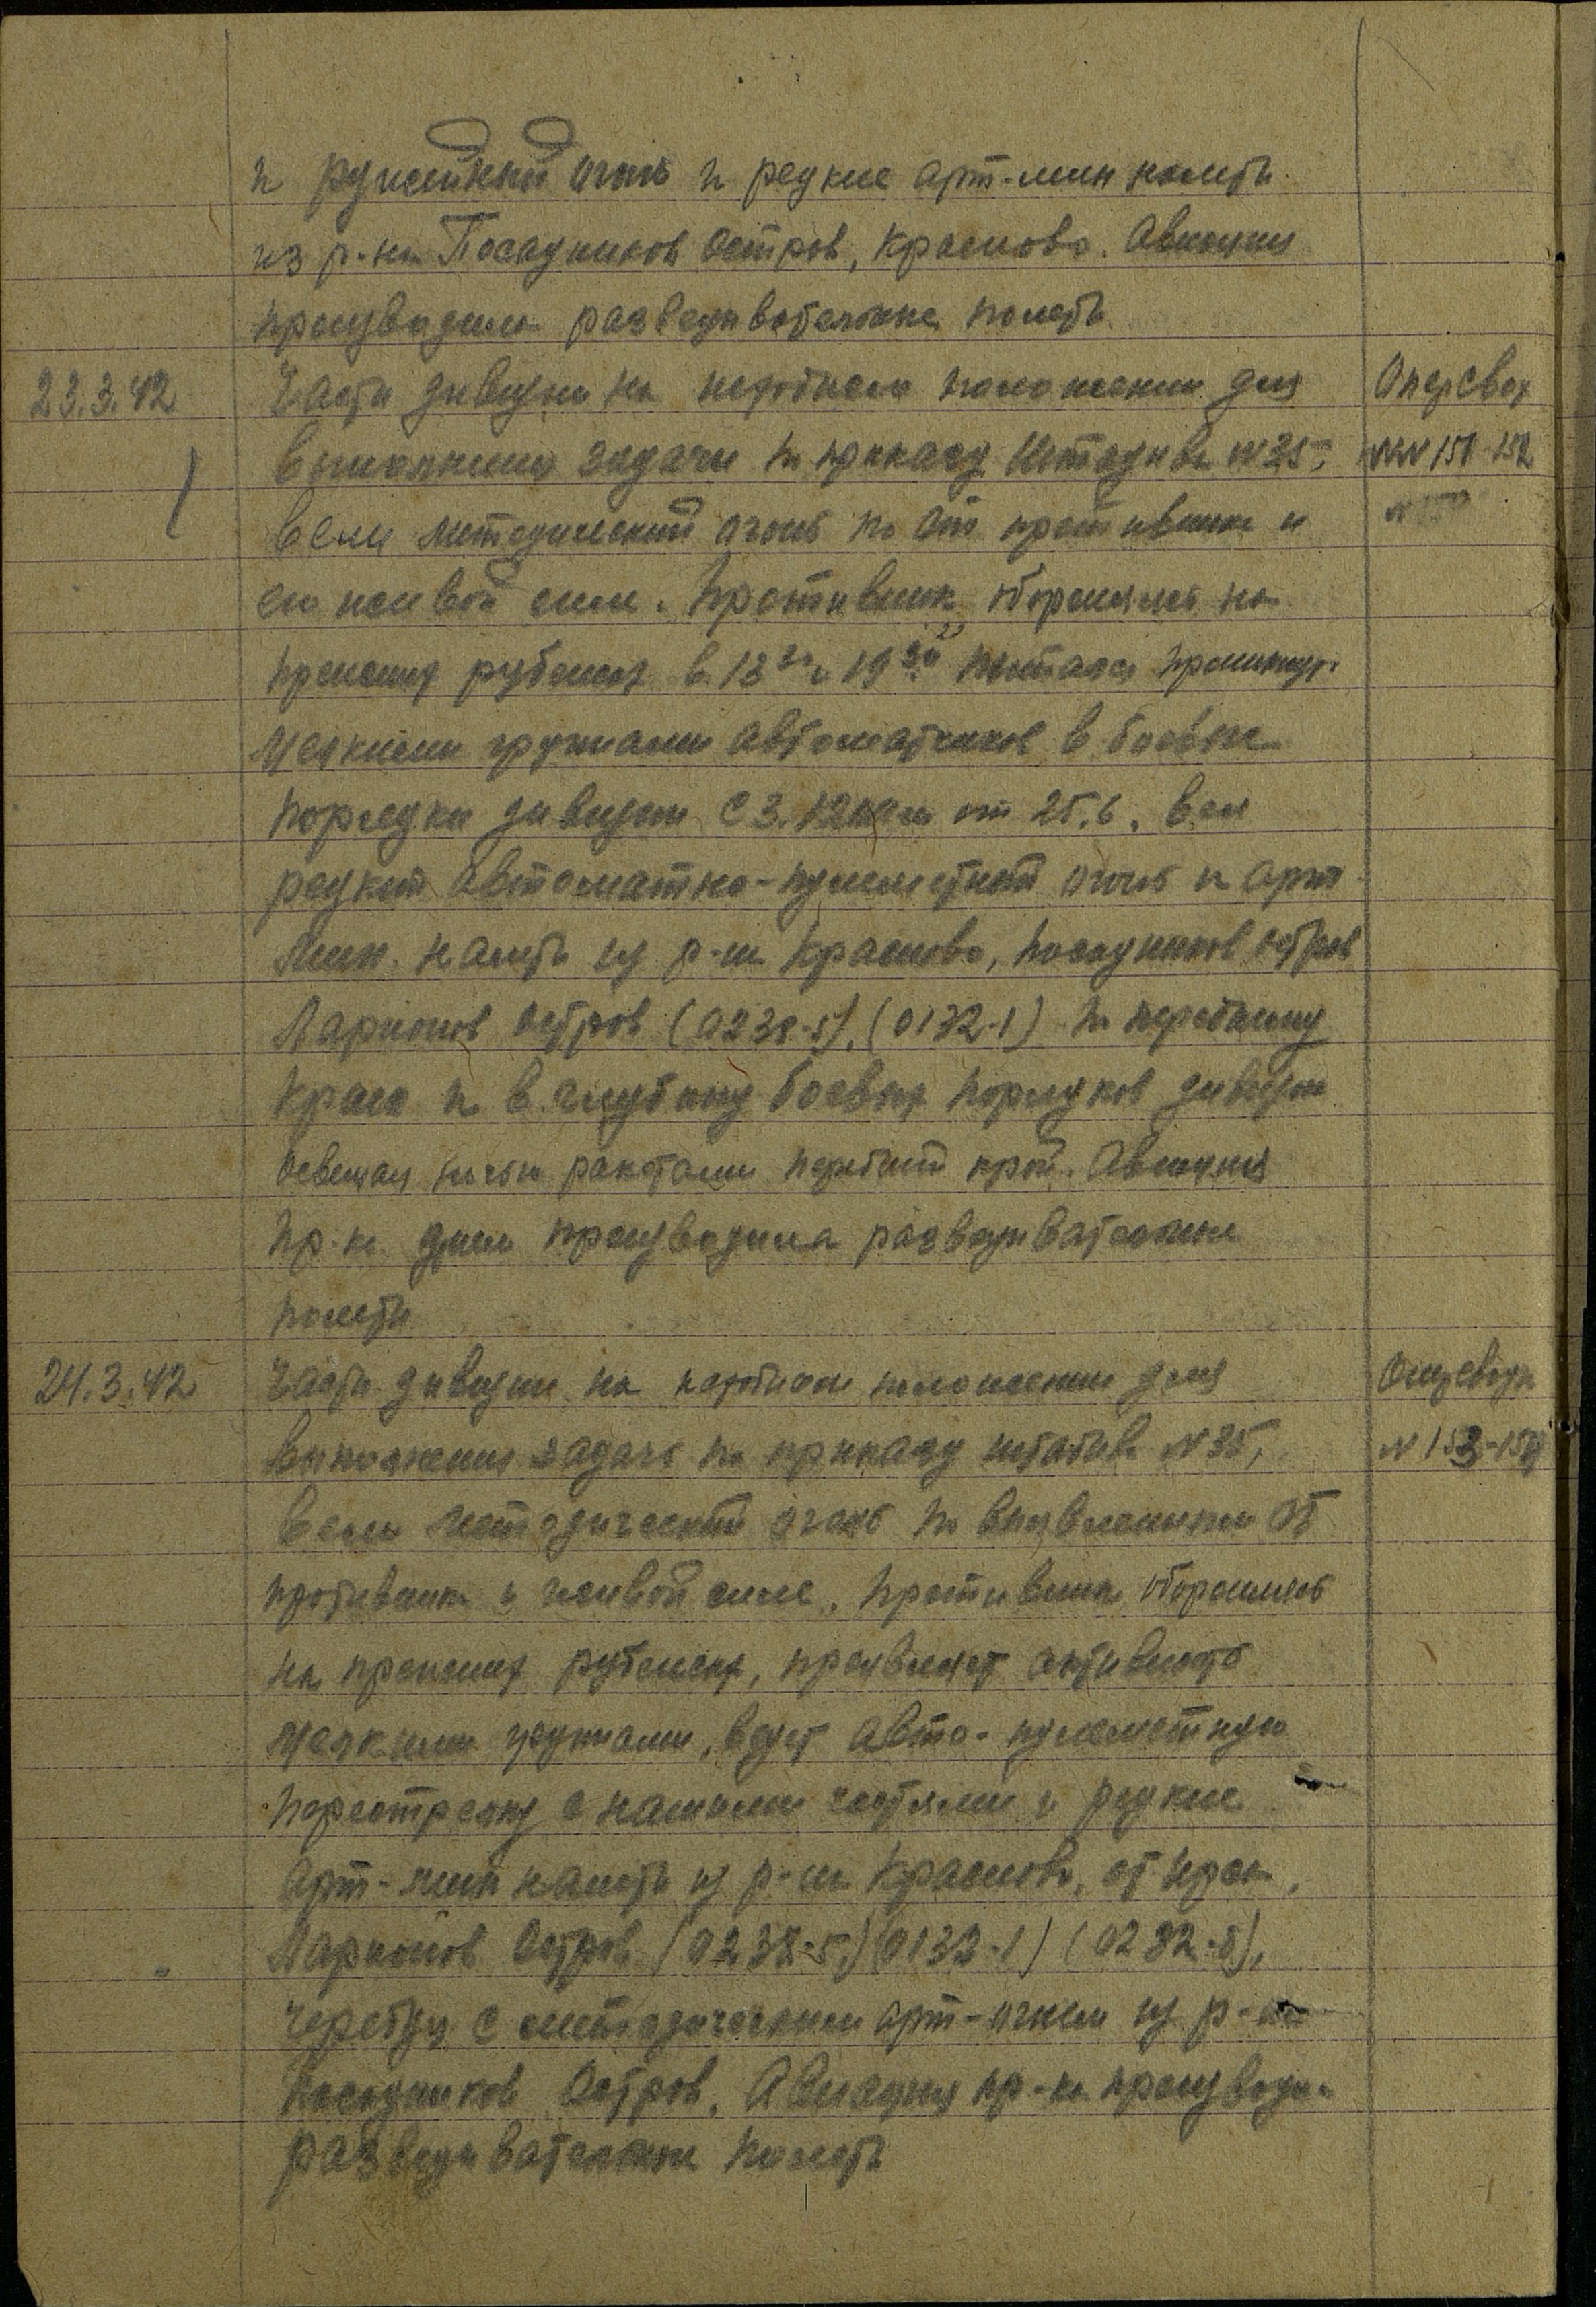 и ружейный огонь и редкие арт-мин налеты
из р-на Посадников Остров, Краснова. Авиация
производила разведывательные полеты
23.3.42 Части дивизии на исходном положении для Оперсвод
выполнения задачи по приказу Штадива №35, №№ 151-152
вели методический огонь по ОТ противника и
его живой силе. Противник, обороняясь на
прежних рубежах в 18 30 и 19 30 пытался проникнуть
мелкими группами автоматчиков в боевые
порядки дивизии с 3. 12 от 25.6. Вел
редкий автоматно-пулеметный огонь и арт
мин. налеты из р-на Краснова, Посадников Остров
Ларионов Остров (0238-5), (0132-1) по переднему
краю и в глубину боевых порядков дивизии
освещая ночью ракетами передний край. Авиация
пр-ка днем производила разведывательные
полеты
24.3.42 Части дивизии на исходном положении для Оперсводки
выполнения задачи по приказу штадива №35, № 153-154
вели методический огонь по выявленным ОТ
противника и живой силе. Противник, обороняясь
на прежних рубежах, проявляет активность
мелкими группами, ведет авто-пулеметную
перестрелку с нашими частями и редкие
арт-мин налеты из р-на Краснова,
Ларионов Остров (0238-5) (0132-1) (0232-5),
чередуя с методическим арт-огнем из р-на
Посадников Остров. Авиация пр-ка производи.
разведывательные полеты